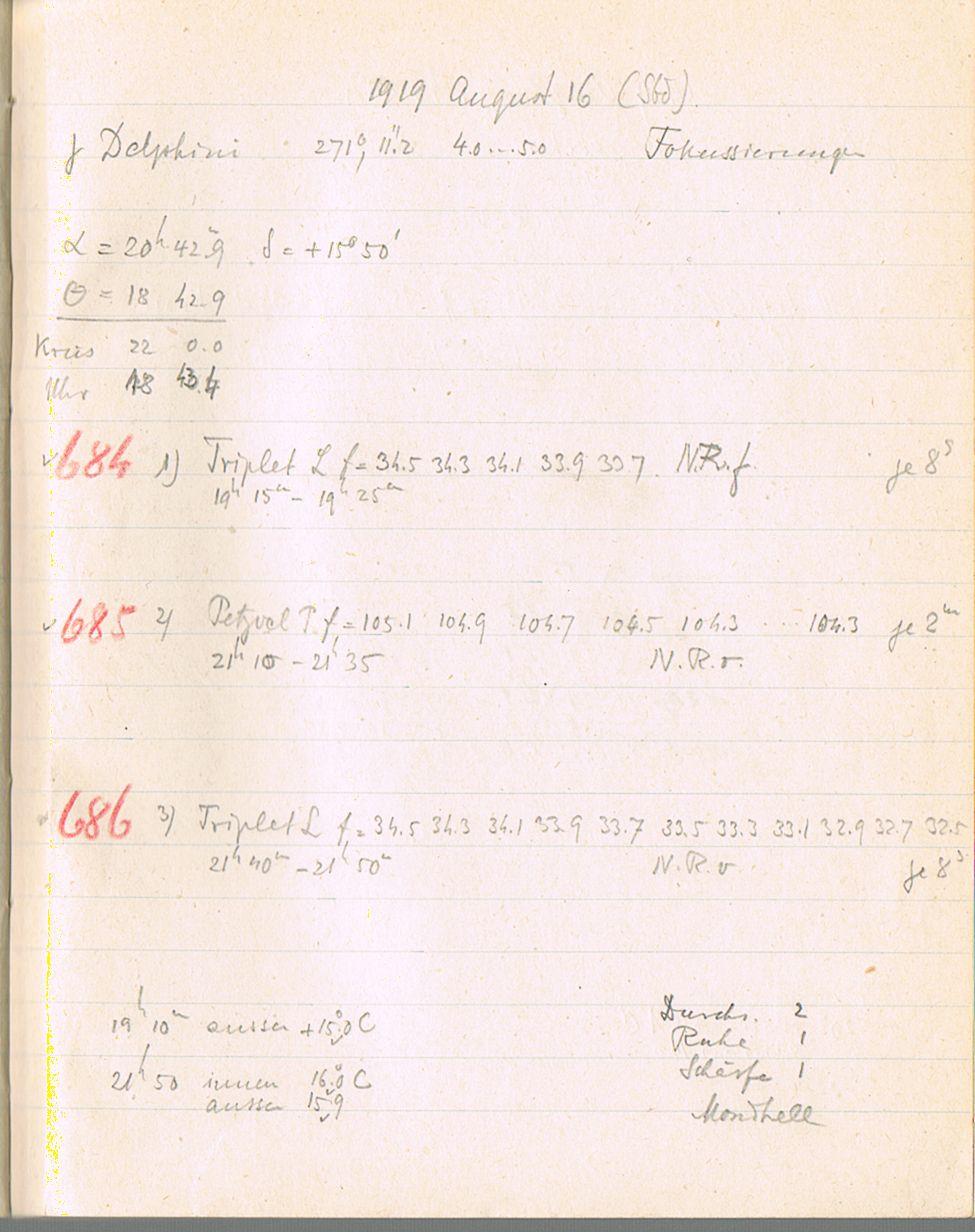 1919 August 16 (Sbd).
γ Delphini 271°, 11."2 4.0...5.0 Fokussierungen
α = 20ʰ 42.ᵐ9 δ = +15° 50'
Θ = 18 42.9
Kreis 22 0.0
Uhr 18 43.4
684 1) Triplet L f = 34.5 34.3 34.1 33.9 33.7 N.R.f. je 8ˢ
19ʰ 15ᵐ – 19ʰ 25ᵐ
685 2) Petzval P. f = 105.1 104.9 104.7 104.5 104.3 ... 104.3 je 2ᵐ
21ʰ 10 – 21ʰ 35 N.R.v.
686 3) Triplet L f = 34.5 34.3 34.1 33.9 33.7 33.5 33.3 33.1 32.9 32.7 32.5
21ʰ 40ᵐ – 21ʰ 50ᵐ N.R.v je 8ˢ
Durchs. 2
19ʰ 10ᵐ aussen +15.°0 C
Ruhe 1
Schärfe 1
21ʰ 50 innen 16.°0 C
aussen 15.9
Mondhell